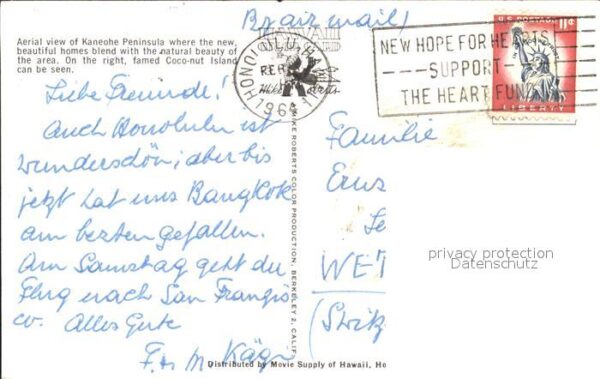 By air mail!
Aerial view of Kaneohe Peninsula where the new,
beautiful homes blend with the natural beauty of
the area. On the right, famed Coco-nut Island
can be seen.
HAWAII
HONOLULU, HAWAII
NEW HOPE FOR HEARTS
SUPPORT
THE HEART FUND
U.S. POSTAGE 11¢
IN GOD WE TRUST
LIBERTY
Liebe Freunde!
Auch Honolulu ist
wunderschön; aber bis
jetzt hat uns Bangkok
am besten gefallen.
Am Samstag geht der
Flug nach San Franzis
co. Alles Gute
F. + M. Kägi
MIKE ROBERTS COLOR PRODUCTION, BERKELEY 2, CALIF
Familie
Erns
Se
WET
(Switz
privacy protection
Datenschutz
Distributed by Movie Supply of Hawaii, Ho